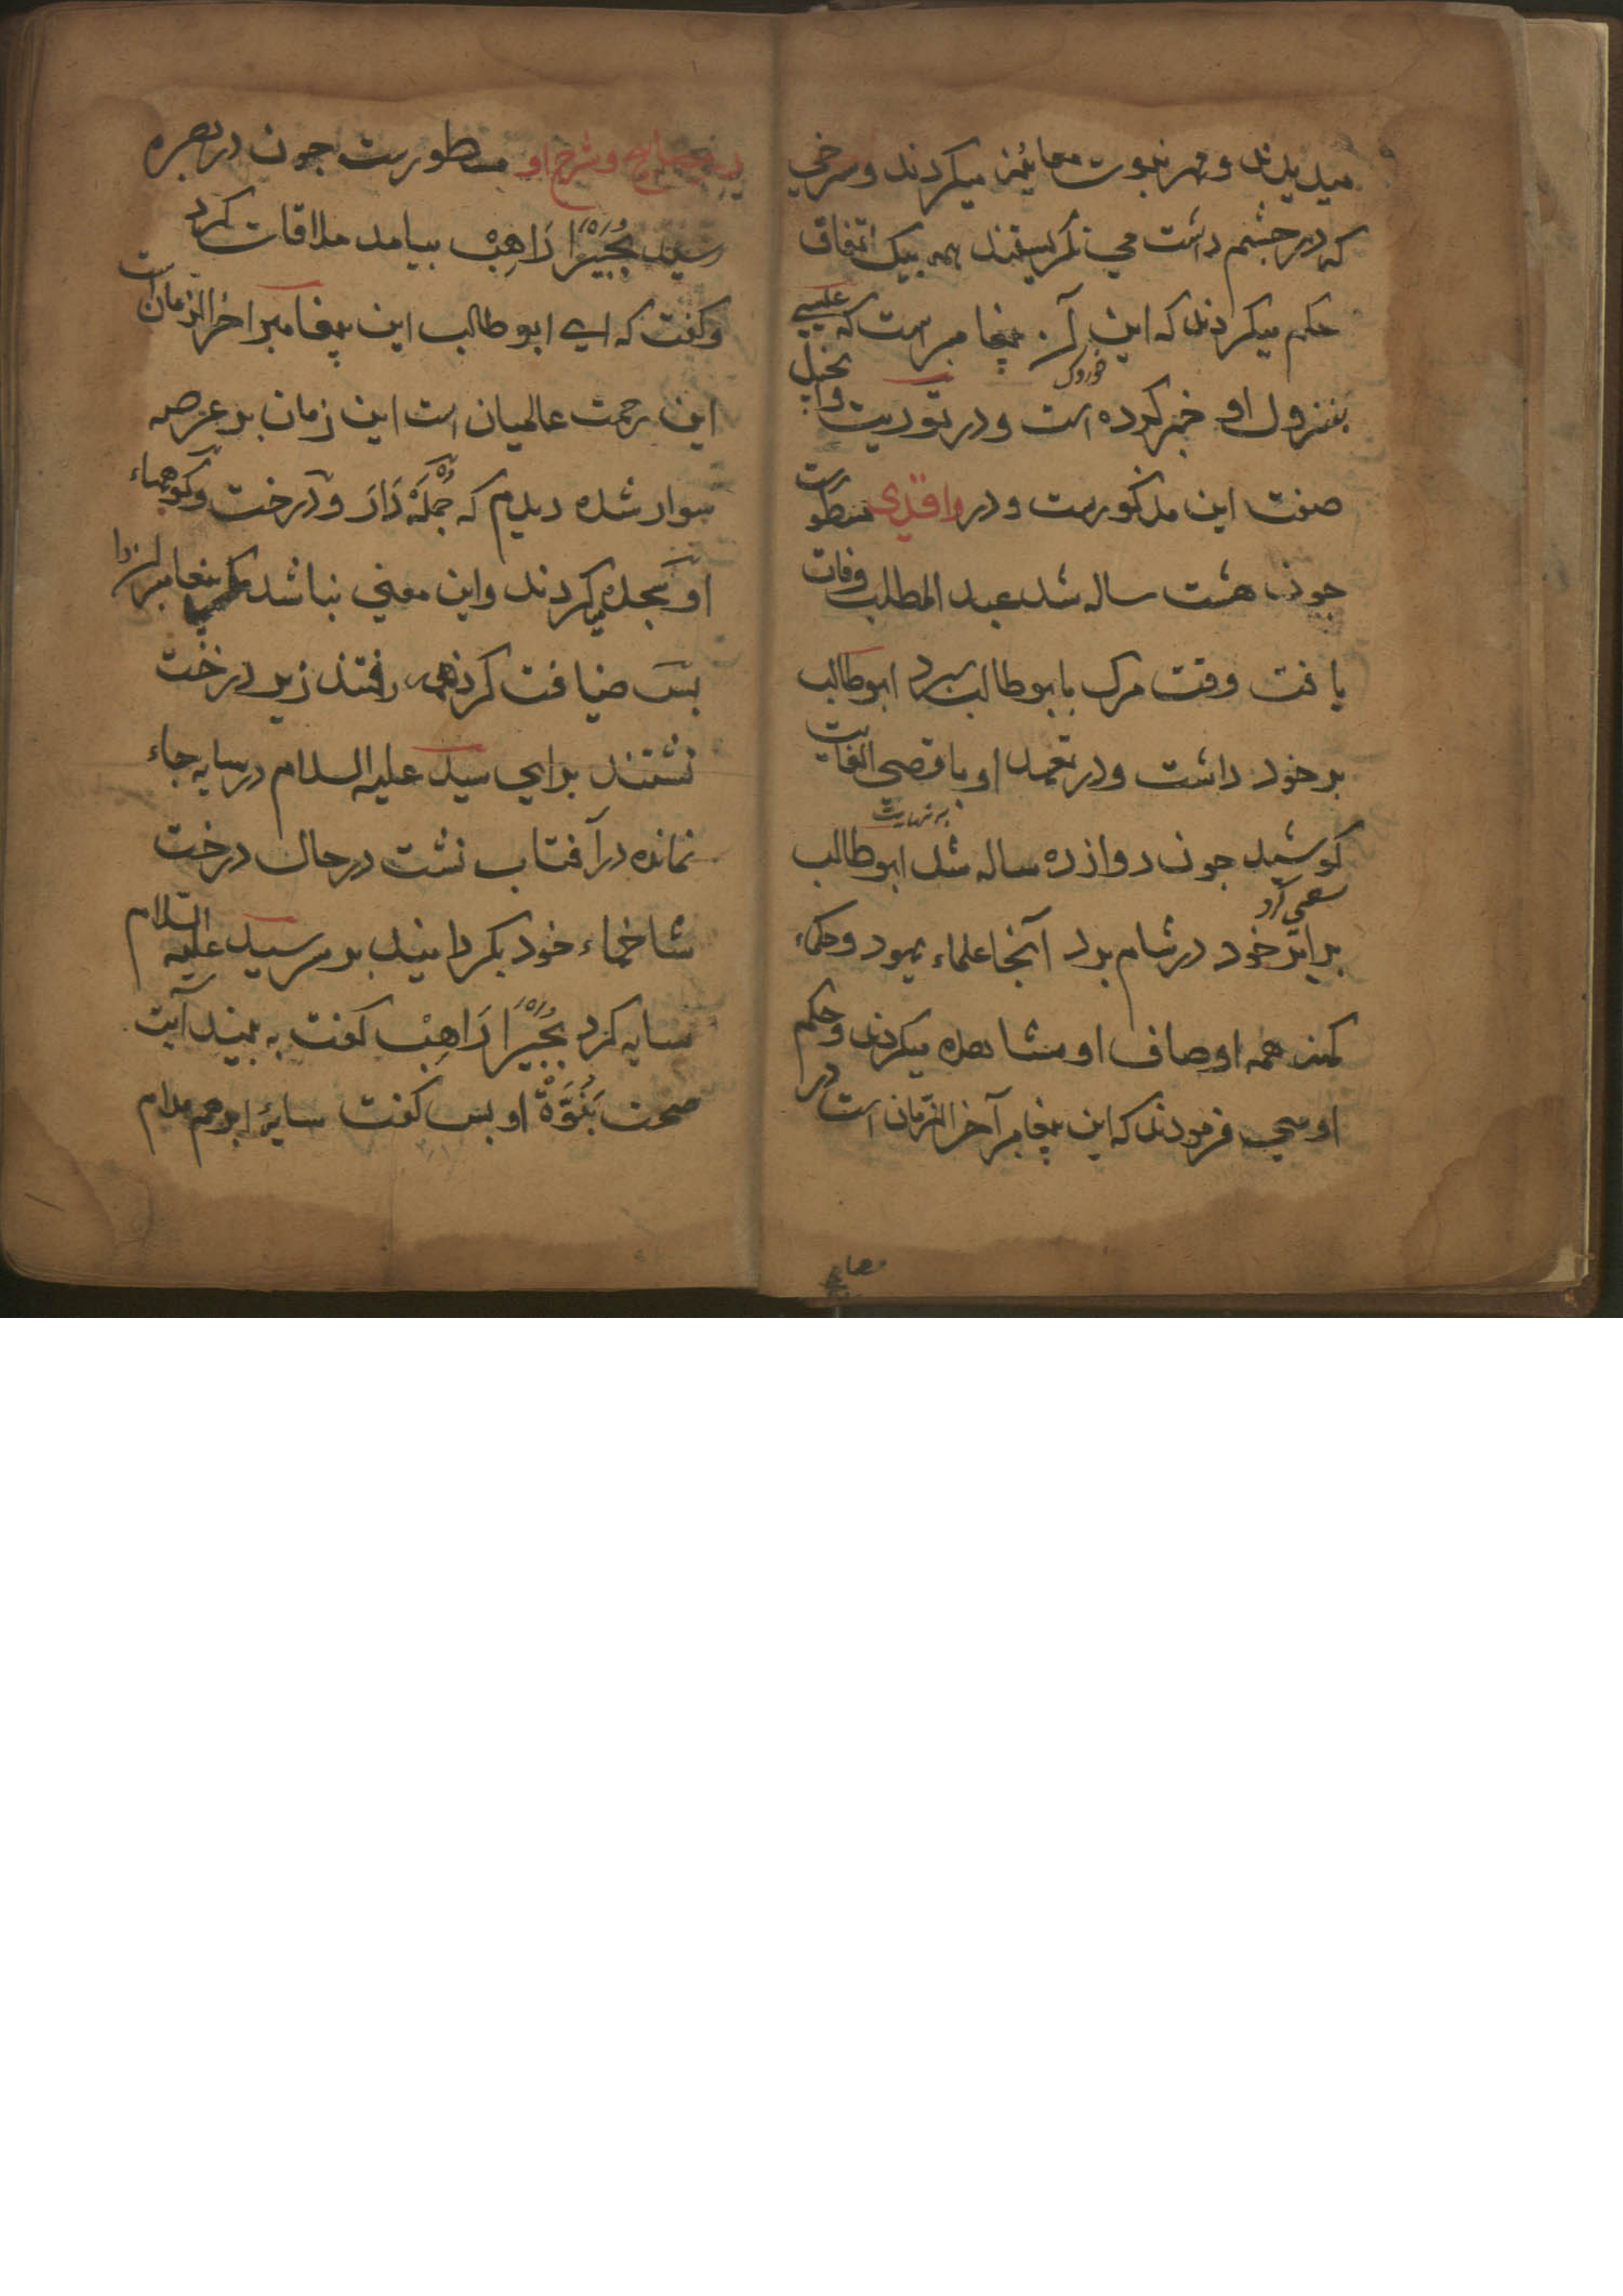 میدیدند و مهر نبوت معاینه میکردند و سرخی
که در چشم داشت می نگریستند همه بیک اتفاق
حکم میکردند که این آن پیغامبر است که عیسی
بنزول او خبر کرده است و در توریت و انجیل
صفت این مذکورست و در واقدی مسطورست
چون هشت ساله شد عبد المطلب وفات
یافت وقت مرک بابو طالب سپرد ابو طالب
بر خود داشت و در تعهد او باقصی الغایت
به نهایت
کوشید چون دوازده ساله شد ابو طالب
سعی کرد
برابر خود در شام برد آنجا علماء یهود و حکماء
همه اوصاف او مشاهده میکردند و حکم
او می فرمودند که این پیغامبر آخر الزمان است در
مصابیح
در مصابیح و شرح او مسطورست چون در بصره
رسید بحیرا راهب بیامد ملاقات کرد
و کفت که ای ابو طالب این پیغامبر اخر الزمان است
این رحمت عالمیان است این زمان بر عرصه
سوار شده دیدم که جمله دار و درخت و کوهها
او سجده میکردند و این معنی نباشد مکر پیغامبران را
بس ضیافت کرد همه رفتند زیر درخت
نشستند برای سید علیه السلام در سایه جاء
نمانده در آفتاب نشت در حال درخت
شاخهاء خود بکردانید بر سر سید علیه السلام
سایه کرد بحیرا راهب کفت به بینید آیت
صحت نبوة او بس کفت سایه ابر هم مدام